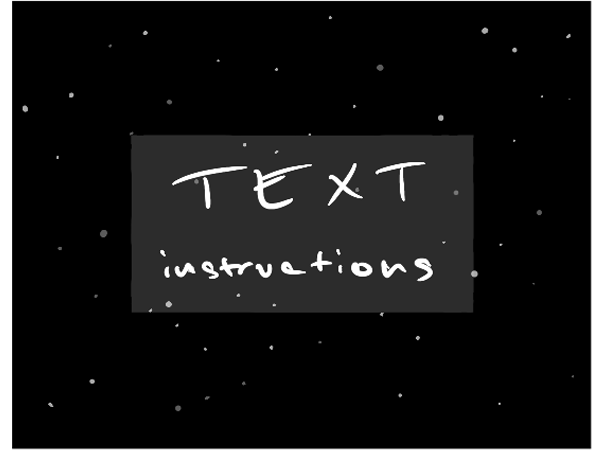 TEXT
instructions